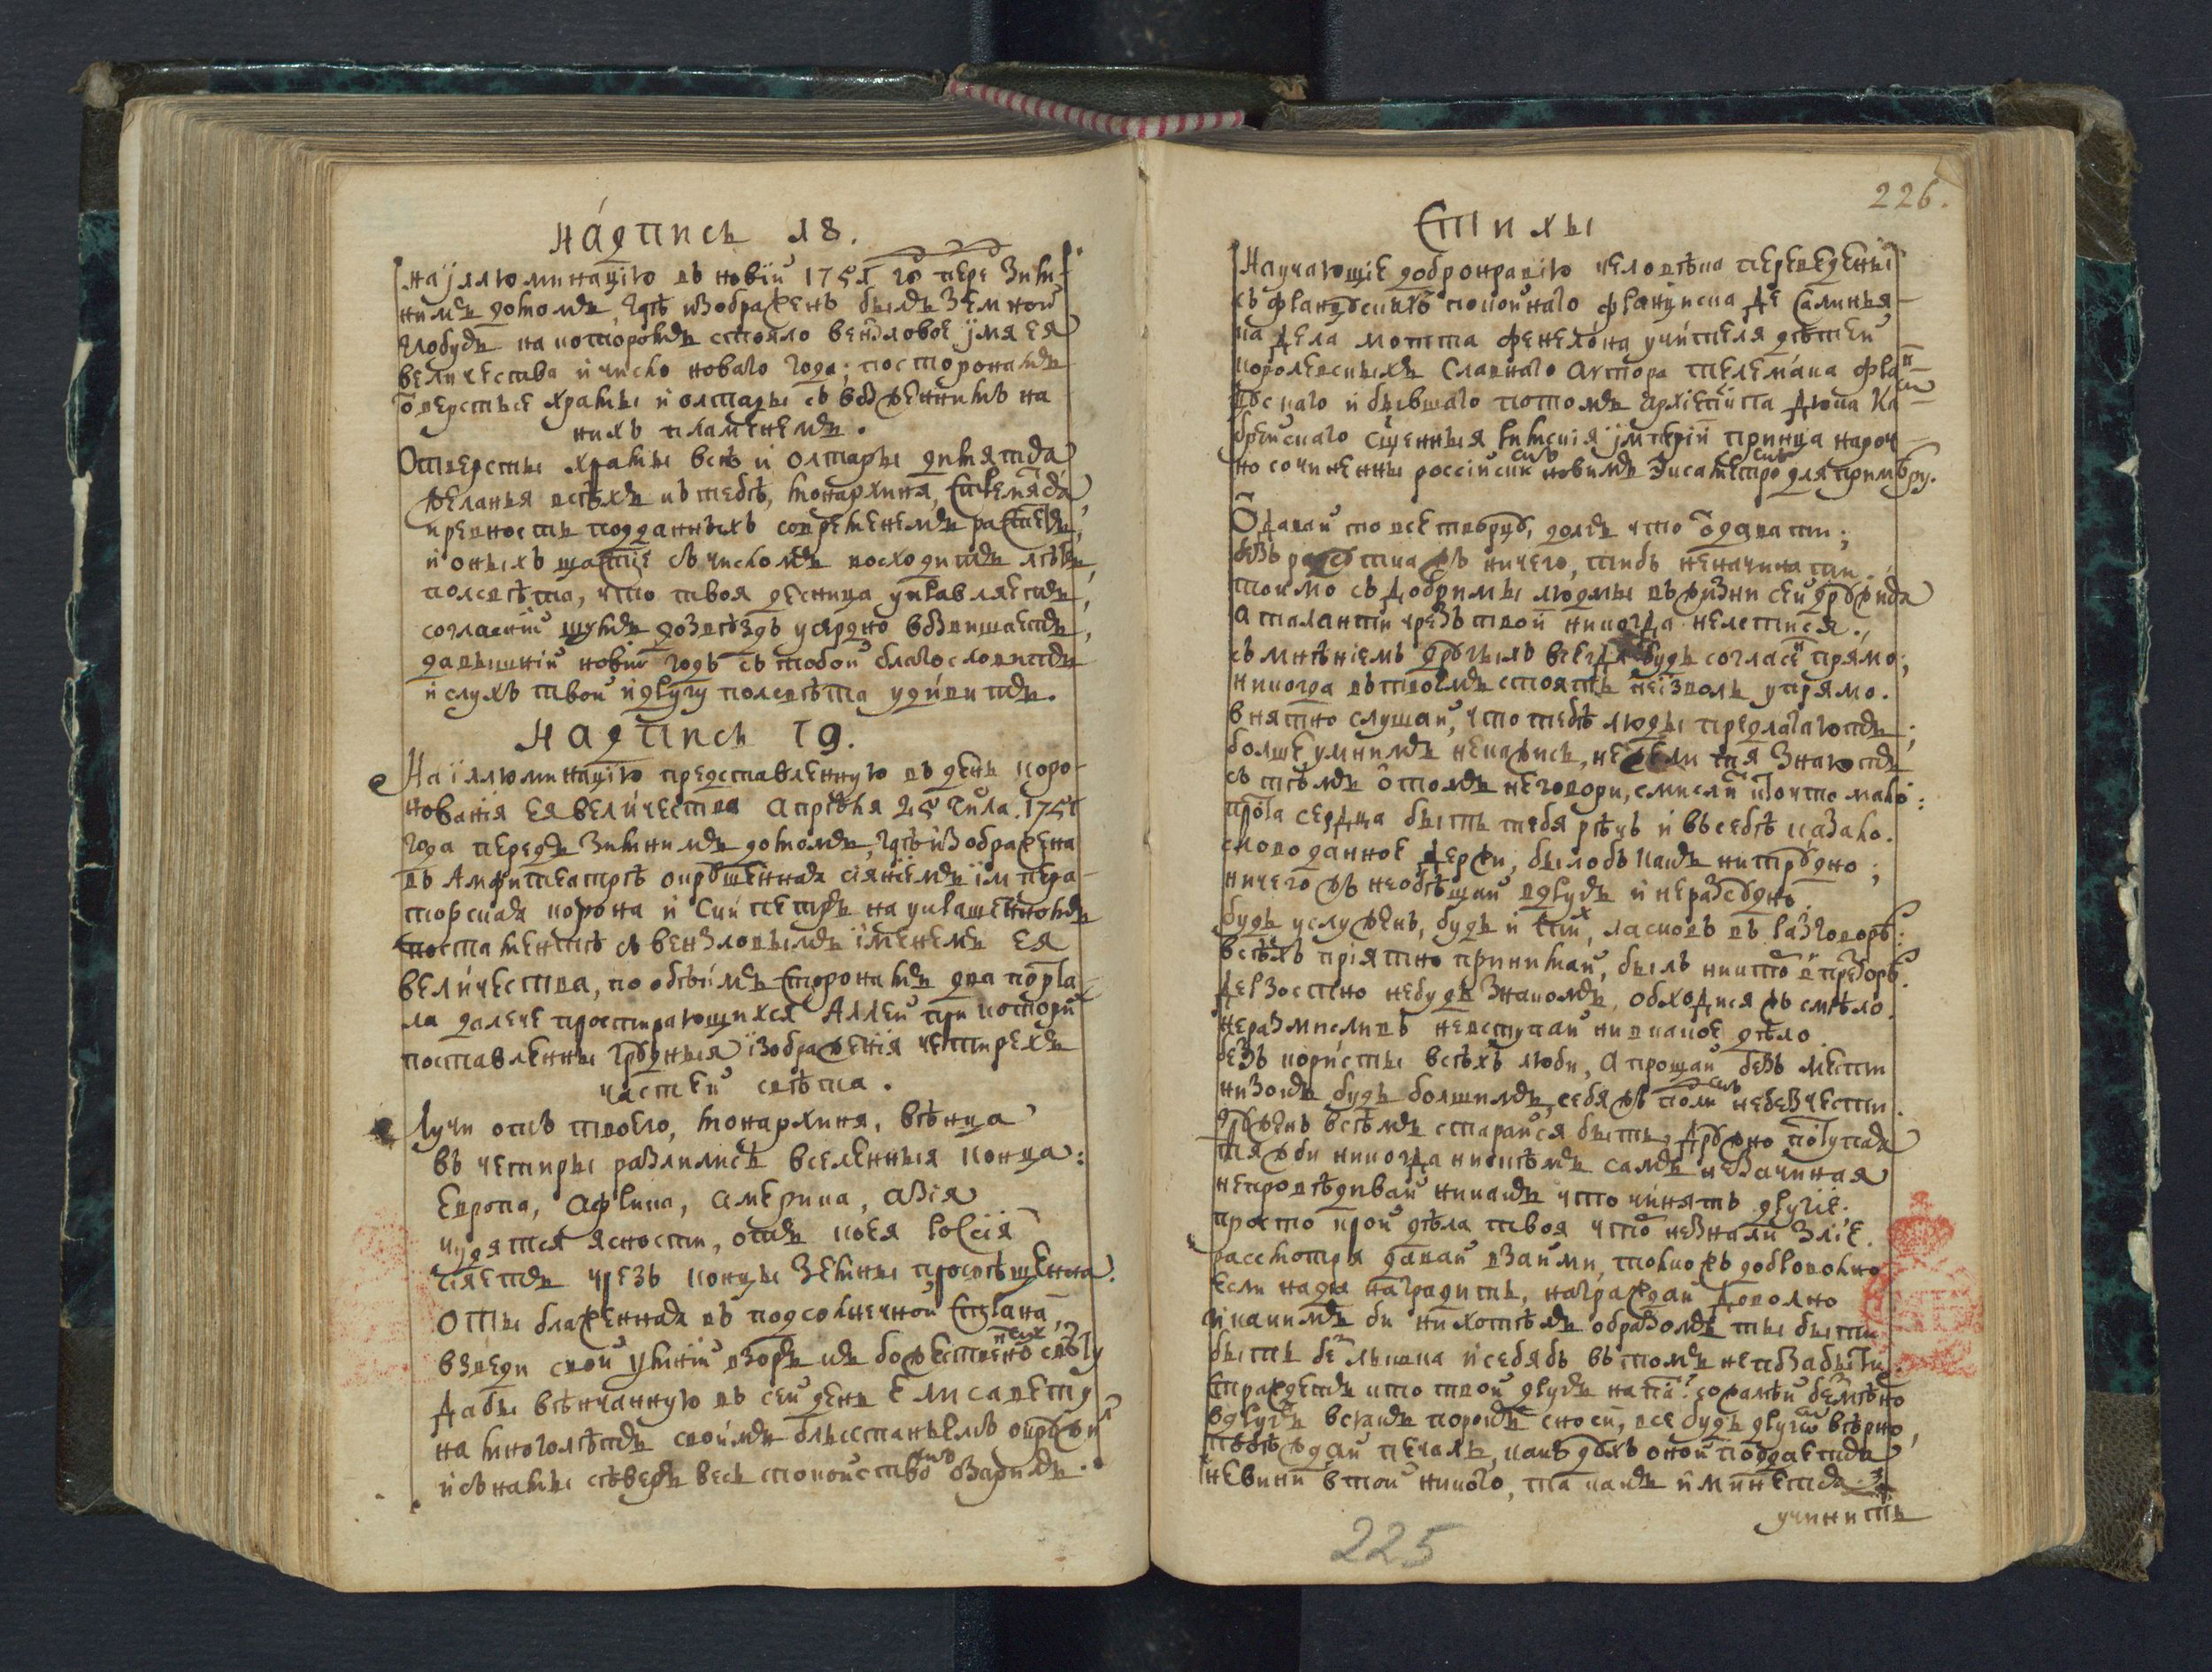 надпись 18.
на јллюминацїю въ новїй 1751 го пере зим-
нимъ домомъ, гдѣ изображенъ былъ земной
глобусъ на которомъ стояло вензловое їмя ея
величества и число новаго года; по сторонамъ
ѿверстые храмы и олтары съ возженнимъ на
нихъ пламенемъ.
Отверсты храмы всѣ и олтары димятся
желанья всѣхъ къ тебѣ, монархиня, стремятся
и ревность подданныхъ современемъ растетъ,
и оныхъ щастїе съ числомъ восходитъ лѣтъ,
полсвѣта, что твоя десница управляетъ,
согласнїй шумъ до звѣздъ усердно возвишаетъ,
давышнїй новий годъ съ тобой благословитъ
и слухъ твой и другу полсвѣта удивитъ.
надпись 19.
На їллюминацїю представленную въ день коро-
нованїя ея величества апрѣля 25 числа. 1751
года передъ зимнимъ домомъ, гдѣ изображена
въ Амфитеатрѣ окруженная сїянїемъ їмпера-
торская корона и скипетръ на украшенномъ
постаментѣ съ вензловымъ їменемъ ея
величества, по обѣимъ сторонамъ два порта-
ла далече простирающихся Аллей при которы
поставленны грудныя їзображенїя четирехъ
частей свѣта.
Лучи отъ твоего, монархиня, вѣнца
въ четиры разлились вселенныя конца:
Европа, африка, америка, азїя
чудятся ясности, отъ коея россїя
сїяетъ чрезъ концы земны просвѣщенна.
О ты блаженная въ подсолнечной страна,
взведи свой умнїй взоръ къ божественно свѣту
дабы вѣнчанную въ сей день Елисавету
на многолѣтъ своимъ блистаньемъ окружи
и съ нами сѣверъ весь спокойство озаримъ.
226.
Стихы
Научающїе добронравїю человѣка переведены
съ французскихъ покойнаго францѵска де Салинья-
ка дела мотта фенелона учителя дѣтей
королевскихъ славнаго автора телемака фран-
цускаго и бывшаго потомъ архїепископа дюка Ка-
брейскаго сщенныя римскїя їмперїи принца нароч-
но сочиненны россїйским новимъ эксаметро для примѣру.
Ѿдавай то все творцу, долгъ что ѿдавати;
безъ разсотка жъ ничего, тибъ неначинати.
токмо съ добрими людмы въ жизни сей дружися
а талантми чрезъ твой никогда нелстися.
съ мнѣнїемъ другихъ всегда будь согласен прямо;
никогда въ твоемъ стоять неїзволь упрямо.
внятно слушай, что тебѣ люды предлагаютъ;
болше умнимъ некажись, нежели тя знаютъ
съ тѣмъ о томъ неговори, смисли кто что мало:
прота сердца быть тебя рѣчь и въ себѣ казало.
слово данное держи, былобъ какъ нитрудно;
ничего жъ необѣщай вдругъ и неразсудно.
будь услуженъ, будь и тих, ласковъ въ разговорѣ:
всѣхъ прїятно принимай, былъ никто в презорѣ.
дерзостно небудь знакомъ, обходися жъ смѣло.
неразмисливъ невступай ни вкакое дѣло.
безъ користы всѣхъ люби, а прощай безъ мести
низокъ будь болшимъ, себя жъ подли небезчести.
друженъ всѣмъ старайся быть, дружно поступая
тяжби никогда никѣмъ самъ незачиная
непровѣдивай никакъ что чинятъ другїе;
просто крой дѣла твоя чтоб незнали злїе.
разсмотря давай взаими, токможъ доброволно
если надо наградить, награждай доволно
и какимъ би нихотѣлъ образомъ ты быти
быть безлышка и себябъ въ томъ непозабыти.
страждетъ кто твой другъ нати: сожалѣй безмѣрно
вдругѣ всякъ порокъ сноси, все будь другом вѣрно,
побѣждай печаль, какъ духъ оной поддается
невини втой никого, та какъ и минется.
учинить
225